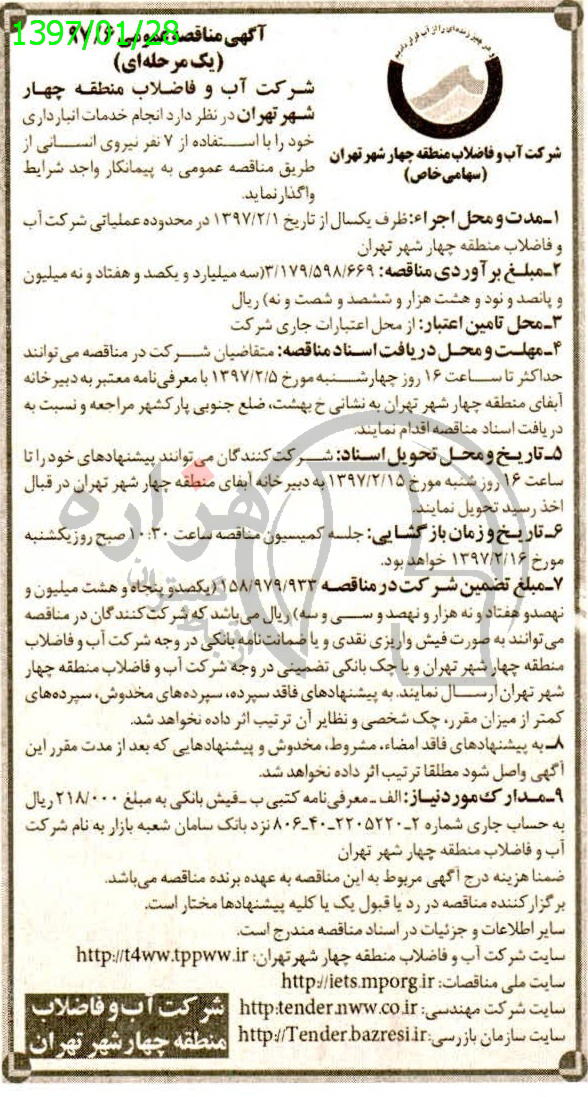 1397/01/28
آگهی مناقصه عمومی ۹۷/۶
(یک مرحله‌ای)
شرکت آب و فاضلاب منطقه چهار
شهر تهران در نظر دارد انجام خدمات انبارداری
خود را با استفاده از ۷ نفر نیروی انسانی از
طریق مناقصه عمومی به پیمانکار واجد شرایط
واگذار نماید.
شرکت آب و فاضلاب منطقه چهار شهر تهران
(سهامی خاص)
۱ـ مدت و محل اجراء: ظرف یکسال از تاریخ ۱۳۹۷/۲/۱ در محدوده عملیاتی شرکت آب
و فاضلاب منطقه چهار شهر تهران
۲ـ مبلغ برآوردی مناقصه: ۳/۱۷۹/۵۹۸/۶۶۹(سه میلیارد و یکصد و هفتاد و نه میلیون
و پانصد و نود و هشت هزار و ششصد و شصت و نه) ریال
۳ـ محل تامین اعتبار: از محل اعتبارات جاری شرکت
۴ـ مهلت و محل دریافت اسناد مناقصه: متقاضیان شرکت در مناقصه می‌توانند
حداکثر تا ساعت ۱۶ روز چهارشنبه مورخ ۱۳۹۷/۲/۵ با معرفی‌نامه معتبر به دبیرخانه
آبفای منطقه چهار شهر تهران به نشانی خ بهشت، ضلع جنوبی پارکشهر مراجعه و نسبت به
دریافت اسناد مناقصه اقدام نمایند.
۵ـ تاریخ و محل تحویل اسناد: شرکت‌کنندگان می‌توانند پیشنهادهای خود را تا
ساعت ۱۶ روز شنبه مورخ ۱۳۹۷/۲/۱۵ به دبیرخانه آبفای منطقه چهار شهر تهران در قبال
اخذ رسید تحویل نمایند.
۶ـ تاریخ و زمان بازگشایی: جلسه کمیسیون مناقصه ساعت ۱۰:۳۰ صبح روز یکشنبه
مورخ ۱۳۹۷/۲/۱۶ خواهد بود.
۷ـ مبلغ تضمین شرکت در مناقصه ۱۵۸/۹۷۹/۹۳۳ (یکصد و پنجاه و هشت میلیون و
نهصد و هفتاد و نه هزار و نهصد و سی و سه) ریال می‌باشد که شرکت‌کنندگان در مناقصه
می‌توانند به صورت فیش واریزی نقدی و یا ضمانت‌نامه بانکی در وجه شرکت آب و فاضلاب
منطقه چهار شهر تهران و یا چک بانکی تضمینی در وجه شرکت آب و فاضلاب منطقه چهار
شهر تهران ارسال نمایند. به پیشنهادهای فاقد سپرده، سپرده‌های مخدوش، سپرده‌های
کمتر از میزان مقرر، چک شخصی و نظایر آن ترتیب اثر داده نخواهد شد.
۸ـ به پیشنهادهای فاقد امضاء، مشروط، مخدوش و پیشنهادهایی که بعد از مدت مقرر این
آگهی واصل شود مطلقا ترتیب اثر داده نخواهد شد.
۹ـ مدارک مورد نیاز: الف ـ معرفی‌نامه کتبی ب ـ فیش بانکی به مبلغ ۲۱۸/۰۰۰ ریال
به حساب جاری شماره ۲ـ۲۲۰۵۲۲۰ـ۴۰ـ۸۰۶ نزد بانک سامان شعبه بازار به نام شرکت
آب و فاضلاب منطقه چهار شهر تهران
ضمنا هزینه درج آگهی مربوط به این مناقصه به عهده برنده مناقصه می‌باشد.
برگزارکننده مناقصه در رد یا قبول یک یا کلیه پیشنهادها مختار است.
سایر اطلاعات و جزئیات در اسناد مناقصه مندرج است.
سایت شرکت آب و فاضلاب منطقه چهار شهر تهران: http://t4ww.tppww.ir
سایت ملی مناقصات: http://iets.mporg.ir
سایت شرکت مهندسی: http:tender.nww.co.ir
سایت سازمان بازرسی: http://Tender.bazresi.ir
شرکت آب و فاضلاب
منطقه چهار شهر تهران
هزاره